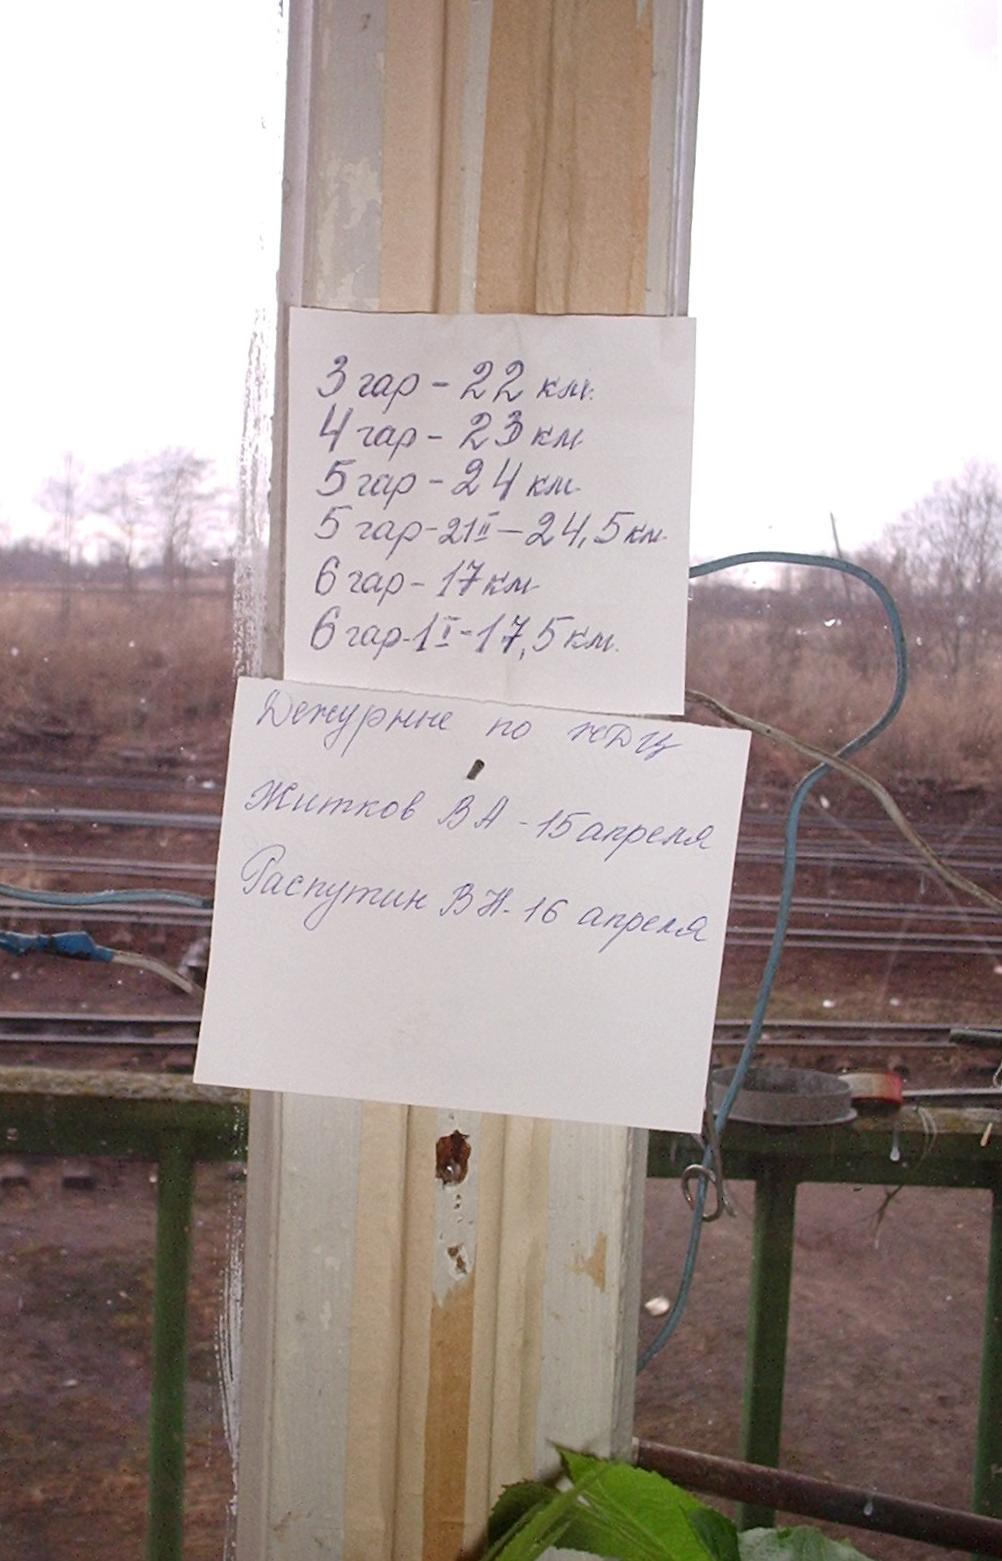 3 гар - 22 км.
4 гар - 23 км
5 гар - 24 км
5 гар - 21II - 24,5 км
6 гар - 17 км
6 гар - 1I - 17,5 км.
Дежурные по ЖДЦ
Житков ВА - 15 апреля
Распутин ВН - 16 апреля